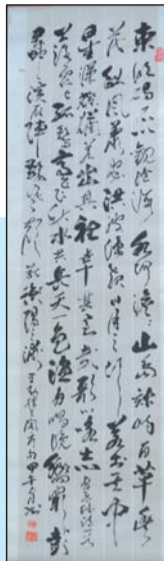 東臨碣石以觀滄海水何澹澹山島竦峙百草豐
茂秋風蕭瑟洪波涌起日月之行若出其中
星漢燦爛若出其裡幸甚至哉歌以詠志
落霞與孤鶩齊飛秋水共長天一色漁舟唱晚響窮彭
蠡之濱雁陣驚寒聲斷衡陽之浦